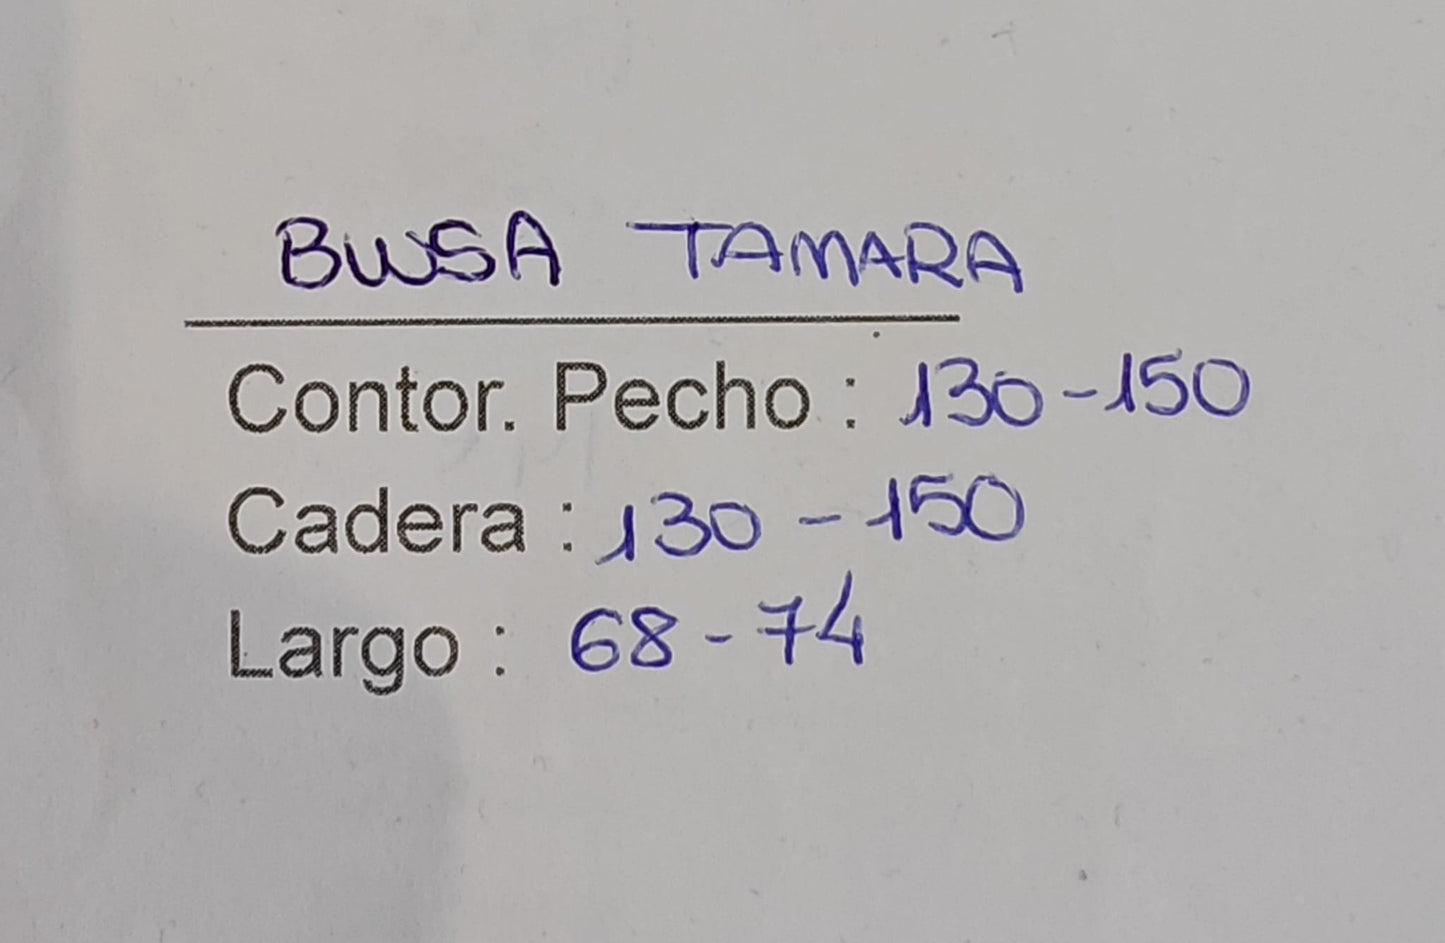 BLUSA TAMARA
Contor. Pecho : 130-150
Cadera : 130 - 150
Largo : 68 - 74